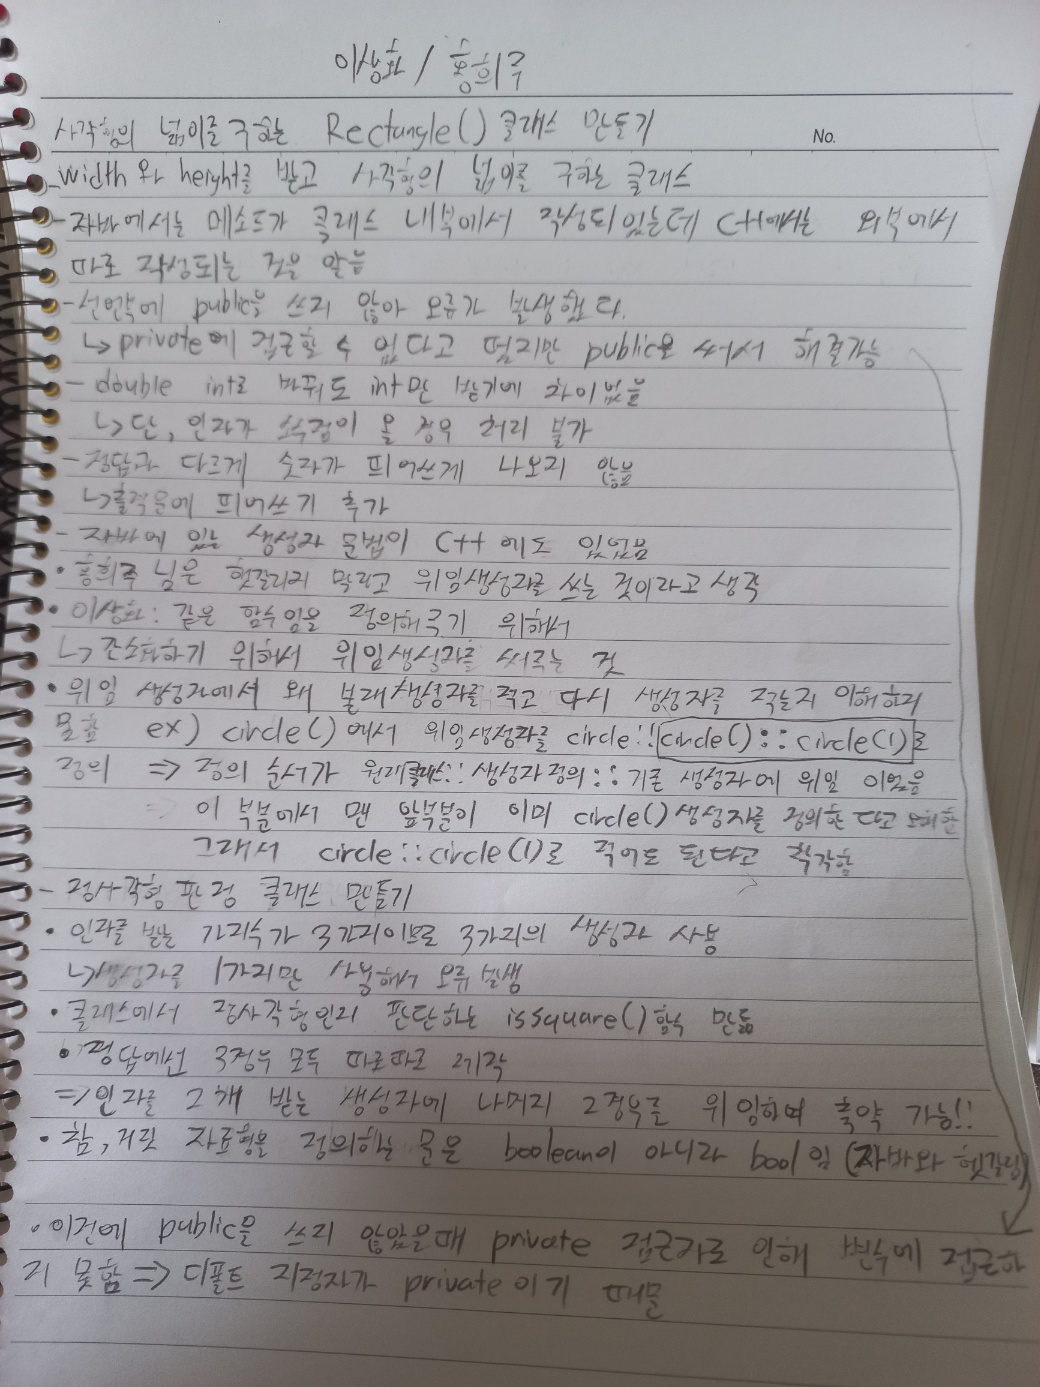 이상화 / 홍희주
사각형의 넓이를 구하는 Rectangle() 클래스 만들기
No.
width와 height를 받고 사각형의 넓이를 구하는 클래스
- 자바에서는 메소드가 클래스 내부에서 작성되있는데 C++에서는 외부에서
따로 작성되는 것을 알음
- 선언부에 public을 쓰지 않아 오류가 발생했다.
↳ private에 접근할 수 없다고 떴지만 public을 써서 해결가능
- double int로 바꿔도 int만 받기에 차이없음
↳ 단, 인자가 소수점이 올 경우 처리 불가
- 정답과 다르게 숫자가 띄어쓰게 나오지 않음
↳ 출력문에 띄어쓰기 추가
- 자바에 있는 생성자 문법이 C++에도 있었음
• 홍희주 님은 헷갈리지 말라고 위임생성자를 쓰는 것이라고 생각
• 이상화: 같은 함수임을 정의해주기 위해서
↳ 간소화하기 위해서 위임생성자를 써주는 것
• 위임 생성자에서 왜 본래생성자를 적고 다시 생성자를 적는지 이해하지
못함 ex) circle()에서 위임생성자를 circle::circle()::circle(1)로
정의 => 정의 순서가 원래클래스::생성자정의::기존 생성자에 위임 이었음
이 부분에서 맨 앞부분이 이미 circle() 생성자를 정의한다고 오해함
그래서 circle::circle(1)로 적어도 된다고 착각함
- 정사각형 판정 클래스 만들기
• 인자를 받는 가지수가 3가지이므로 3가지의 생성자 사용
↳ 생성자를 1가지만 사용해서 오류 발생
• 클래스에서 정사각형인지 판단하는 issquare()함수 만듦
• 정답에선 3경우 모두 따로따로 제작
=> 인자를 2개 받는 생성자에 나머지 2경우를 위임하여 축약 가능!!
• 참, 거짓 자료형을 정의하는 문은 boolean이 아니라 bool임 (자바와 헷갈림)
• 이전에 public을 쓰지 않았을때 private 접근자로 인해 변수에 접근하
지 못함 => 디폴트 지정자가 private이기 때문